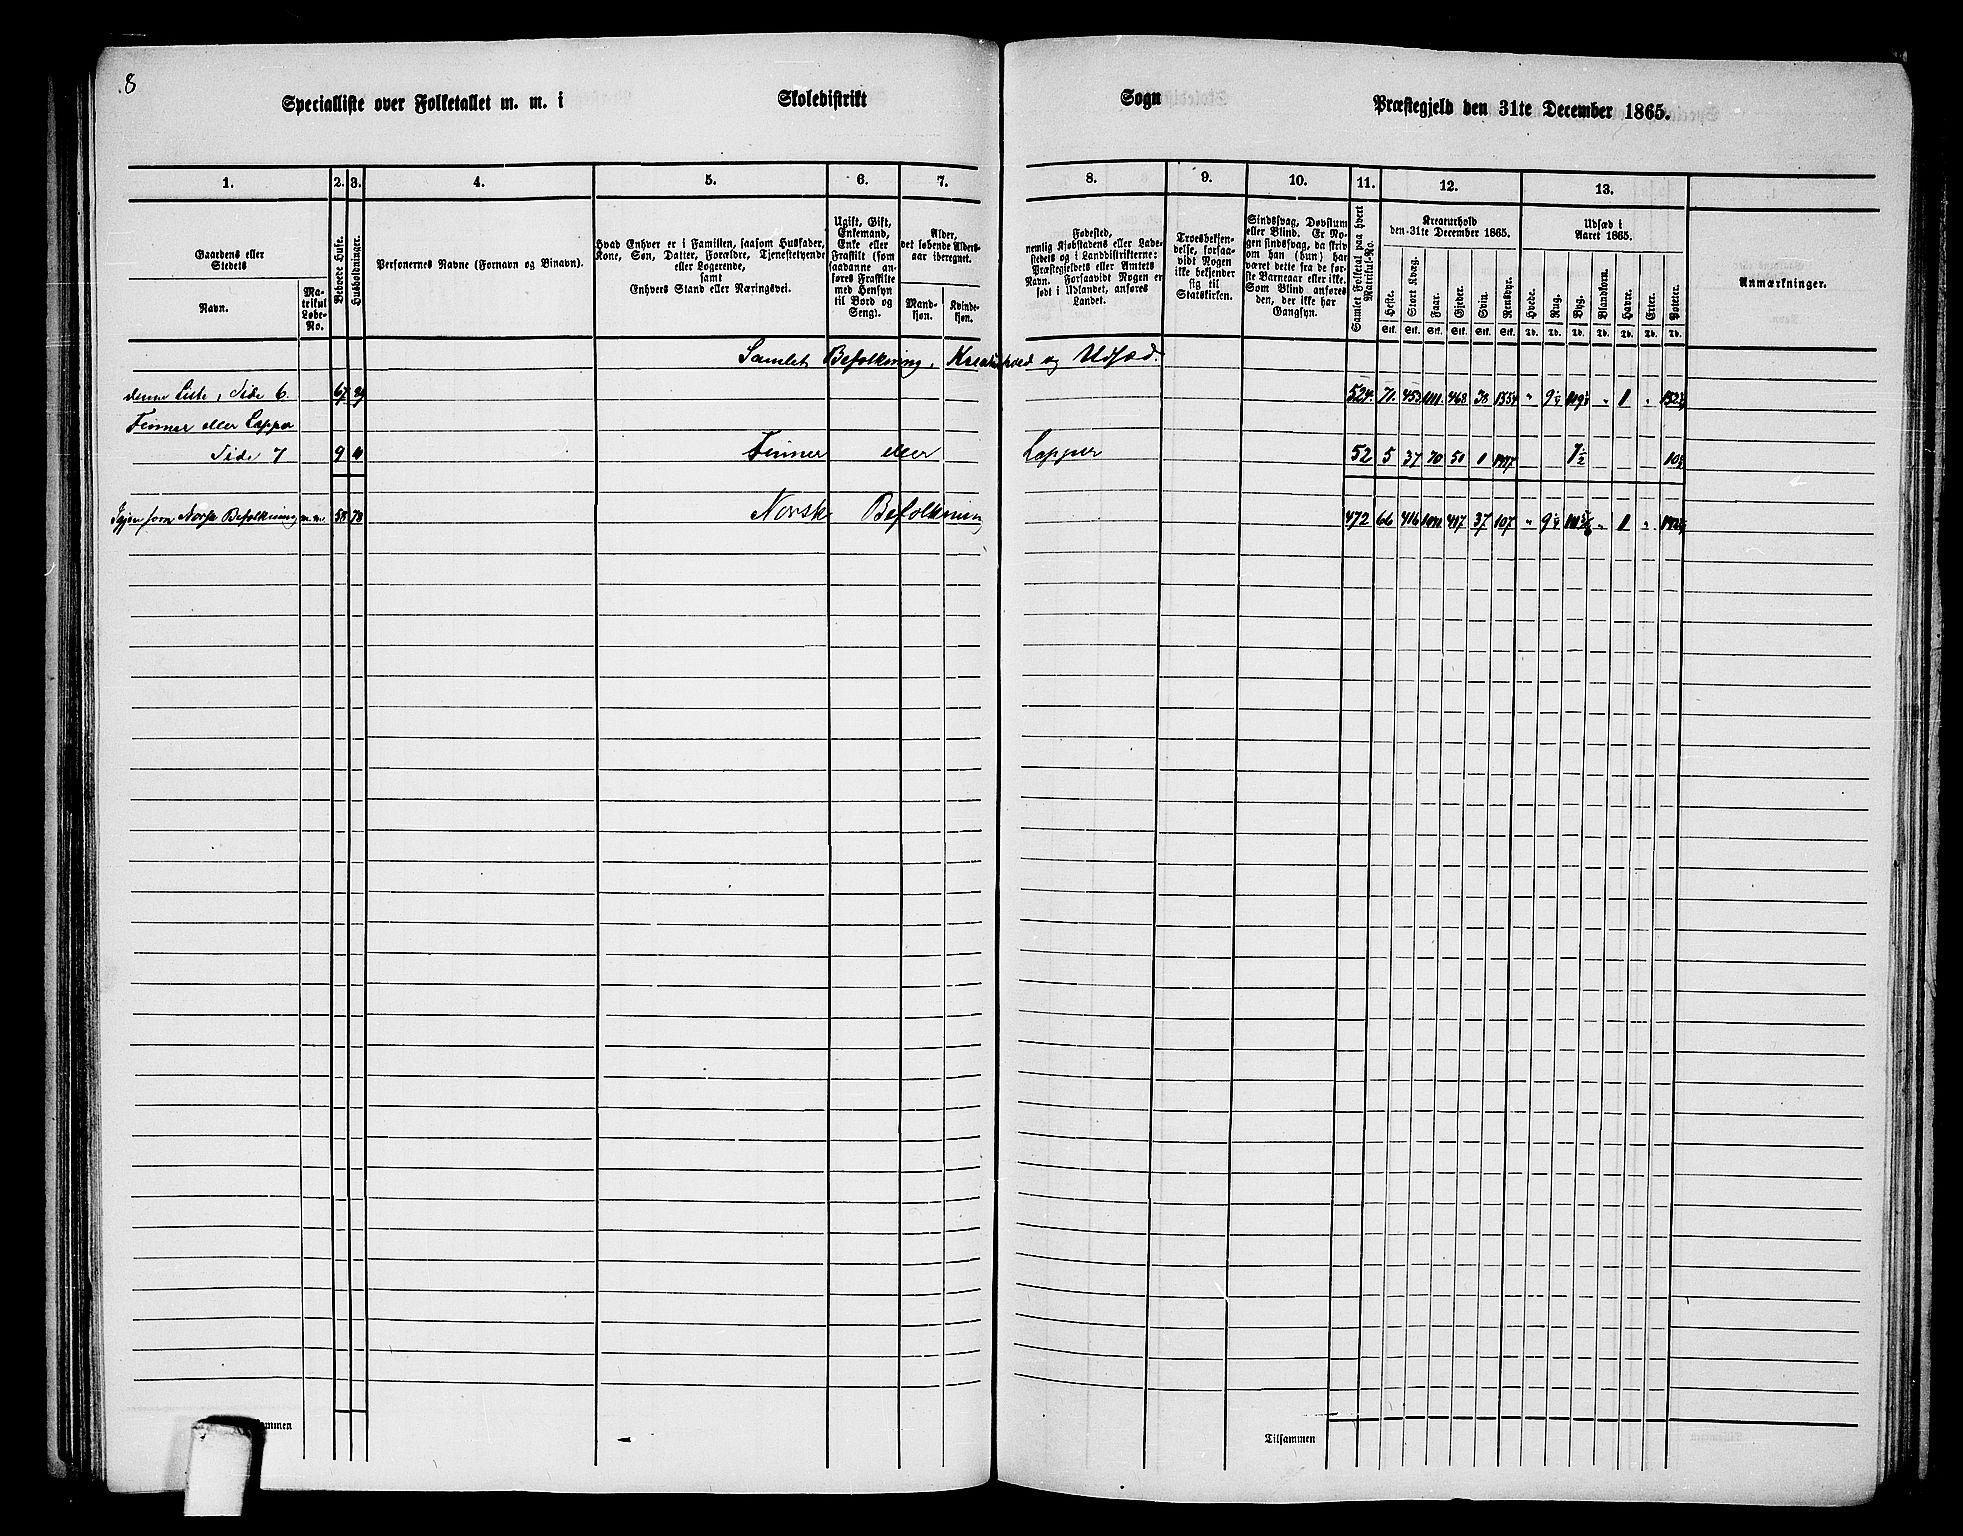 8
Specialliste over Folketallet m. m. i Skoledistrikt Sogn Præstegjeld den 31te December 1865.
1. 2. 3. 4. 5. 6. 7. 8. 9. 10. 11. 12. 13.
Gaardens eller Stedets
Navn.
Matrikul Løbe-No.
Beboede Huse.
Husholdninger.
Personernes Navne (Fornavn og Binavn).
Hvad Enhver er i Familien, saasom Husfader,
Kone, Søn, Datter, Forældre, Tjenestetyende
eller Logerende,
samt
Enhvers Stand eller Næringsvei.
Ugift, Gift,
Enkemand,
Enke eller
Fraskilt (som
saadanne an-
føres Fraskilte
med Hensyn
til Bord og
Seng).
Alder,
det løbende Alders-
aar iberegnet.
Mand-
kjøn.
Kvinde-
kjøn.
Fødested,
nemlig Kjøbstadens eller Lade-
stedets og i Landdistrikterne:
Præstegjeldets eller Amtets
Navn. Forsaavidt Nogen er
født i Udlandet, anføres
Landet.
Troesbekjen-
delse, forsaa-
vidt Nogen
ikke bekjender
sig til
Statskirken.
Sindssvag, Døvstum
eller Blind. Er No-
gen sindssvag, da skriv
om han (hun) har
været dette fra de før-
ste Barneaar eller ikke.
Som Blind anføres
den, der ikke har
Gangsyn.
Samlet Folketal paa hvert
Matrikul-No.
Kreaturhold
den 31te December 1865.
Heste. Stort Kvæg. Faar. Gjeder. Svin. Rensdyr.
Stk. Stk. Stk. Stk. Stk. Stk.
Udsæd i
Aaret 1865.
Hvede. Rug. Byg. Blandkorn. Havre. Erter. Poteter.
Td. Td. Td. Td. Td. Td. Td.
Anmærkninger.
Samlet Befolkning, Kreaturhold og Udsæd.
denne Liste, Side 6. 67 524. 71. 453 468 38 1
Finner eller Lapper
Side 7 9 Finner eller Lapper 52 5 37 70 51 1 7½
Norsk Befolkning m.m. 58 78 Norsk Befolkning 472 66 416 417 37 107 1
Tilsammen